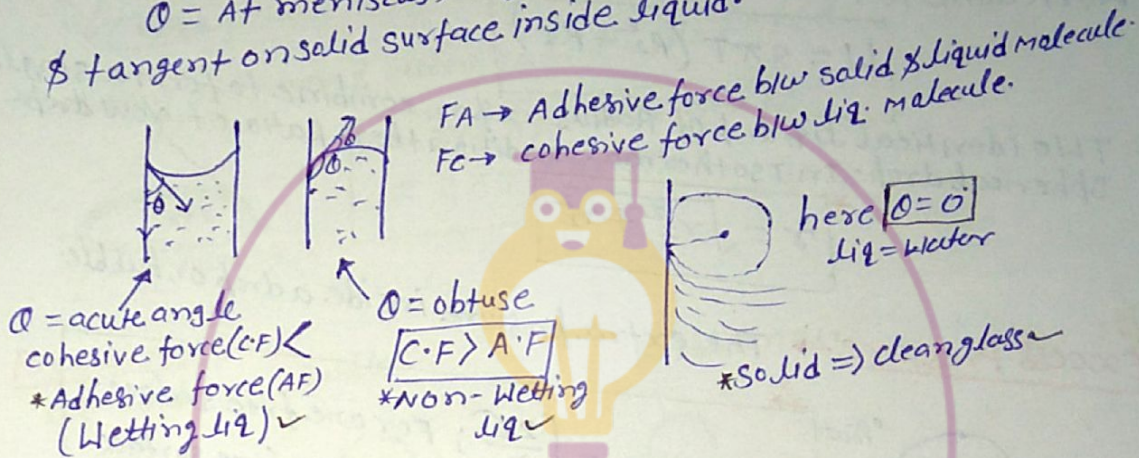 θ = At menis
& tangent on solid surface inside liquid.
FA → Adhesive force b/w solid & liquid molecule.
FC → cohesive force b/w liq. molecule.
θ
θ
here θ = 0
liq = water
θ = acute angle
cohesive force (C.F) <
*Adhesive force (AF)
(Wetting liq) ✓
θ = obtuse
C.F > A.F
*Non-Wetting
liq ✓
*Solid ⇒ clean glass